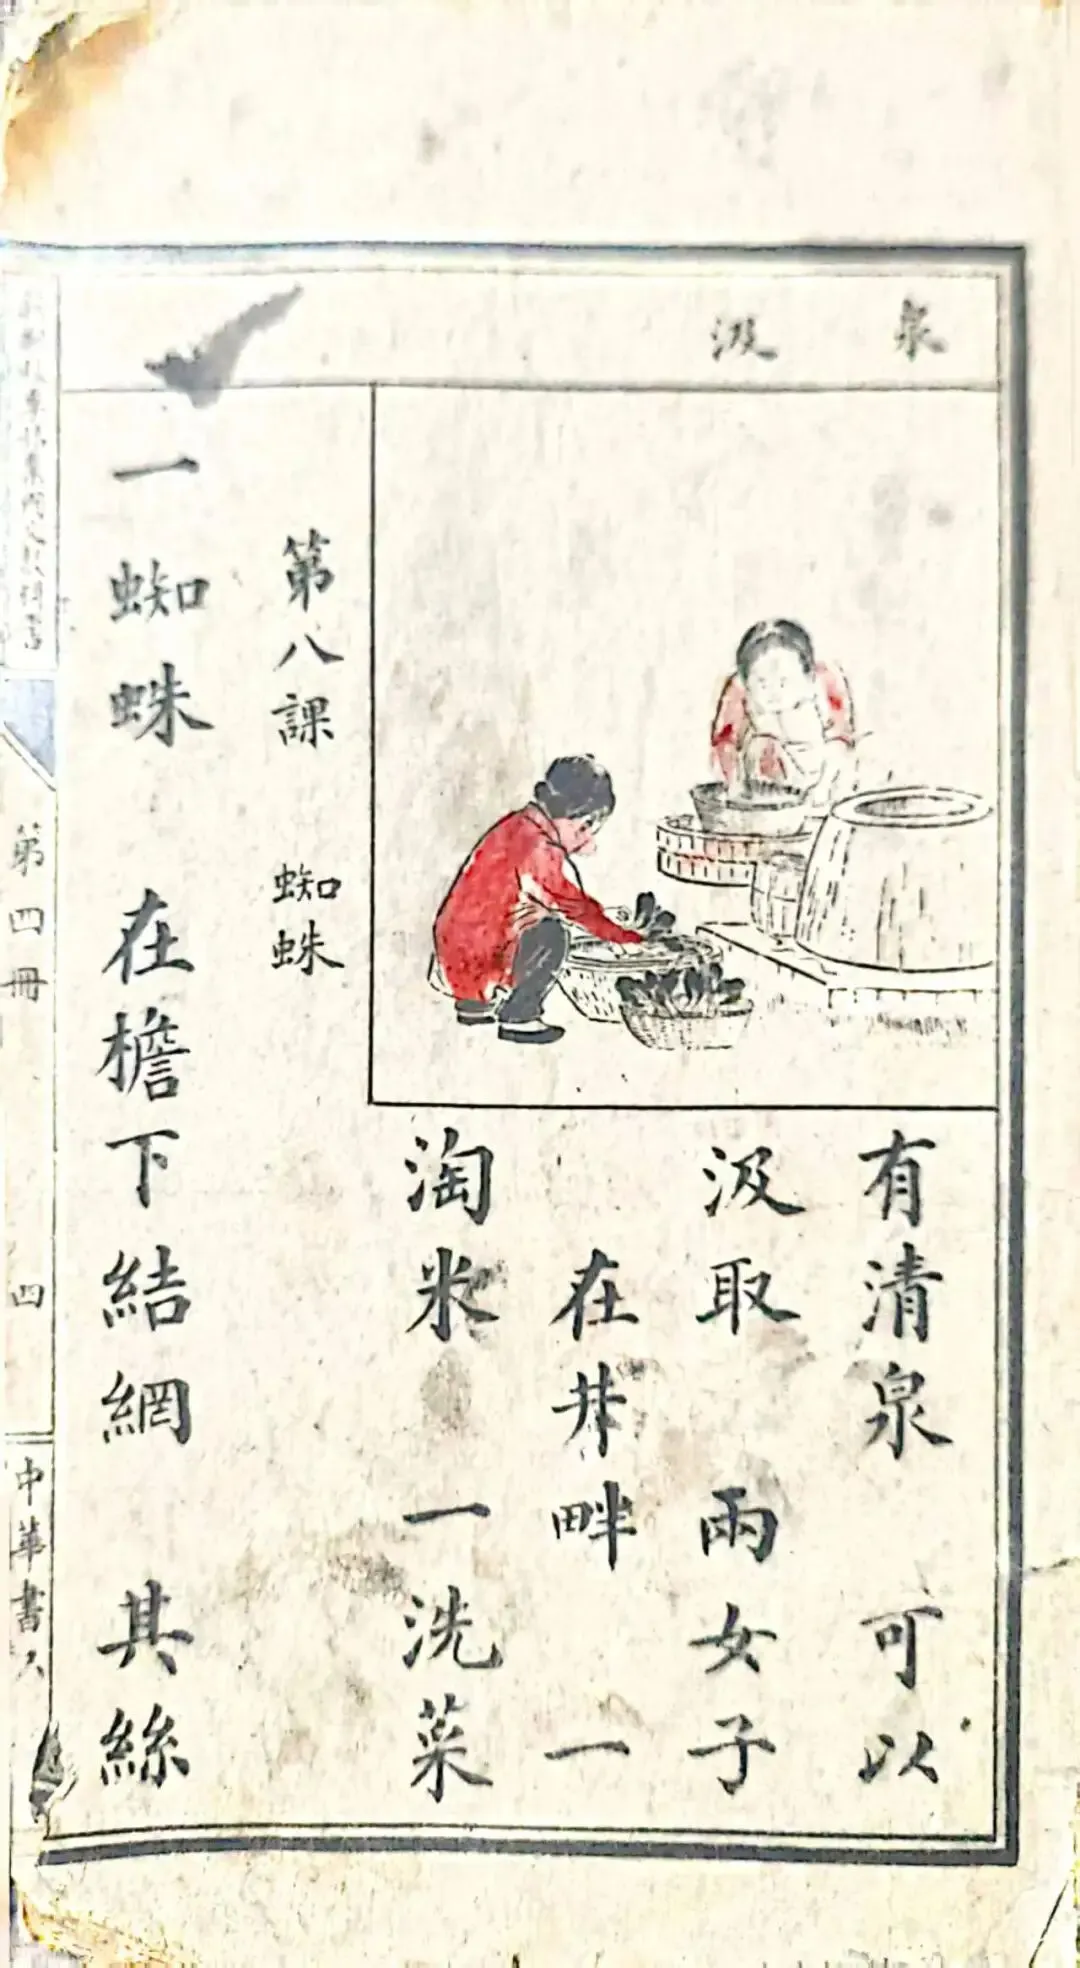 泉
汲
有清泉 可以
汲取 兩女子
在井畔 一
淘米 一洗菜
第八課 蜘蛛
一蜘蛛 在檐下結網 其絲
第四冊
四
中華書